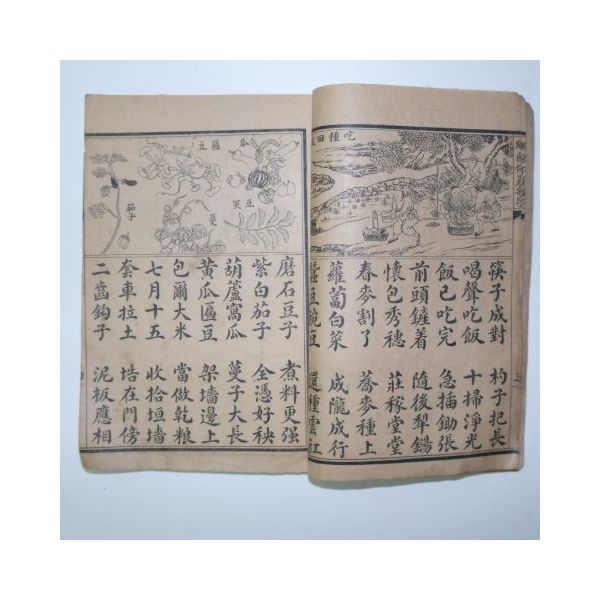 吃種田
筷子成對 杓子把長
喝聲吃飯 十掃淨光
飯已吃完 急插鋤張
前頭鏟着 隨後犁鍚
懷包秀穗 莊稼堂堂
春麥割了 蕎麥種上
蘿蔔白菜 成隴成行
蠶豆豌豆 還種雲
瓜
匾豆
豆莢
蔓
茄子
磨石豆子 煮料更强
紫白茄子 全憑好秧
葫蘆窩瓜 蔓子大長
黄瓜匾豆 架墙邊上
包爾大米 當做乾粮
七月十五 收拾垣墙
套車拉土 培在門傍
二齒鈎子 泥板應相